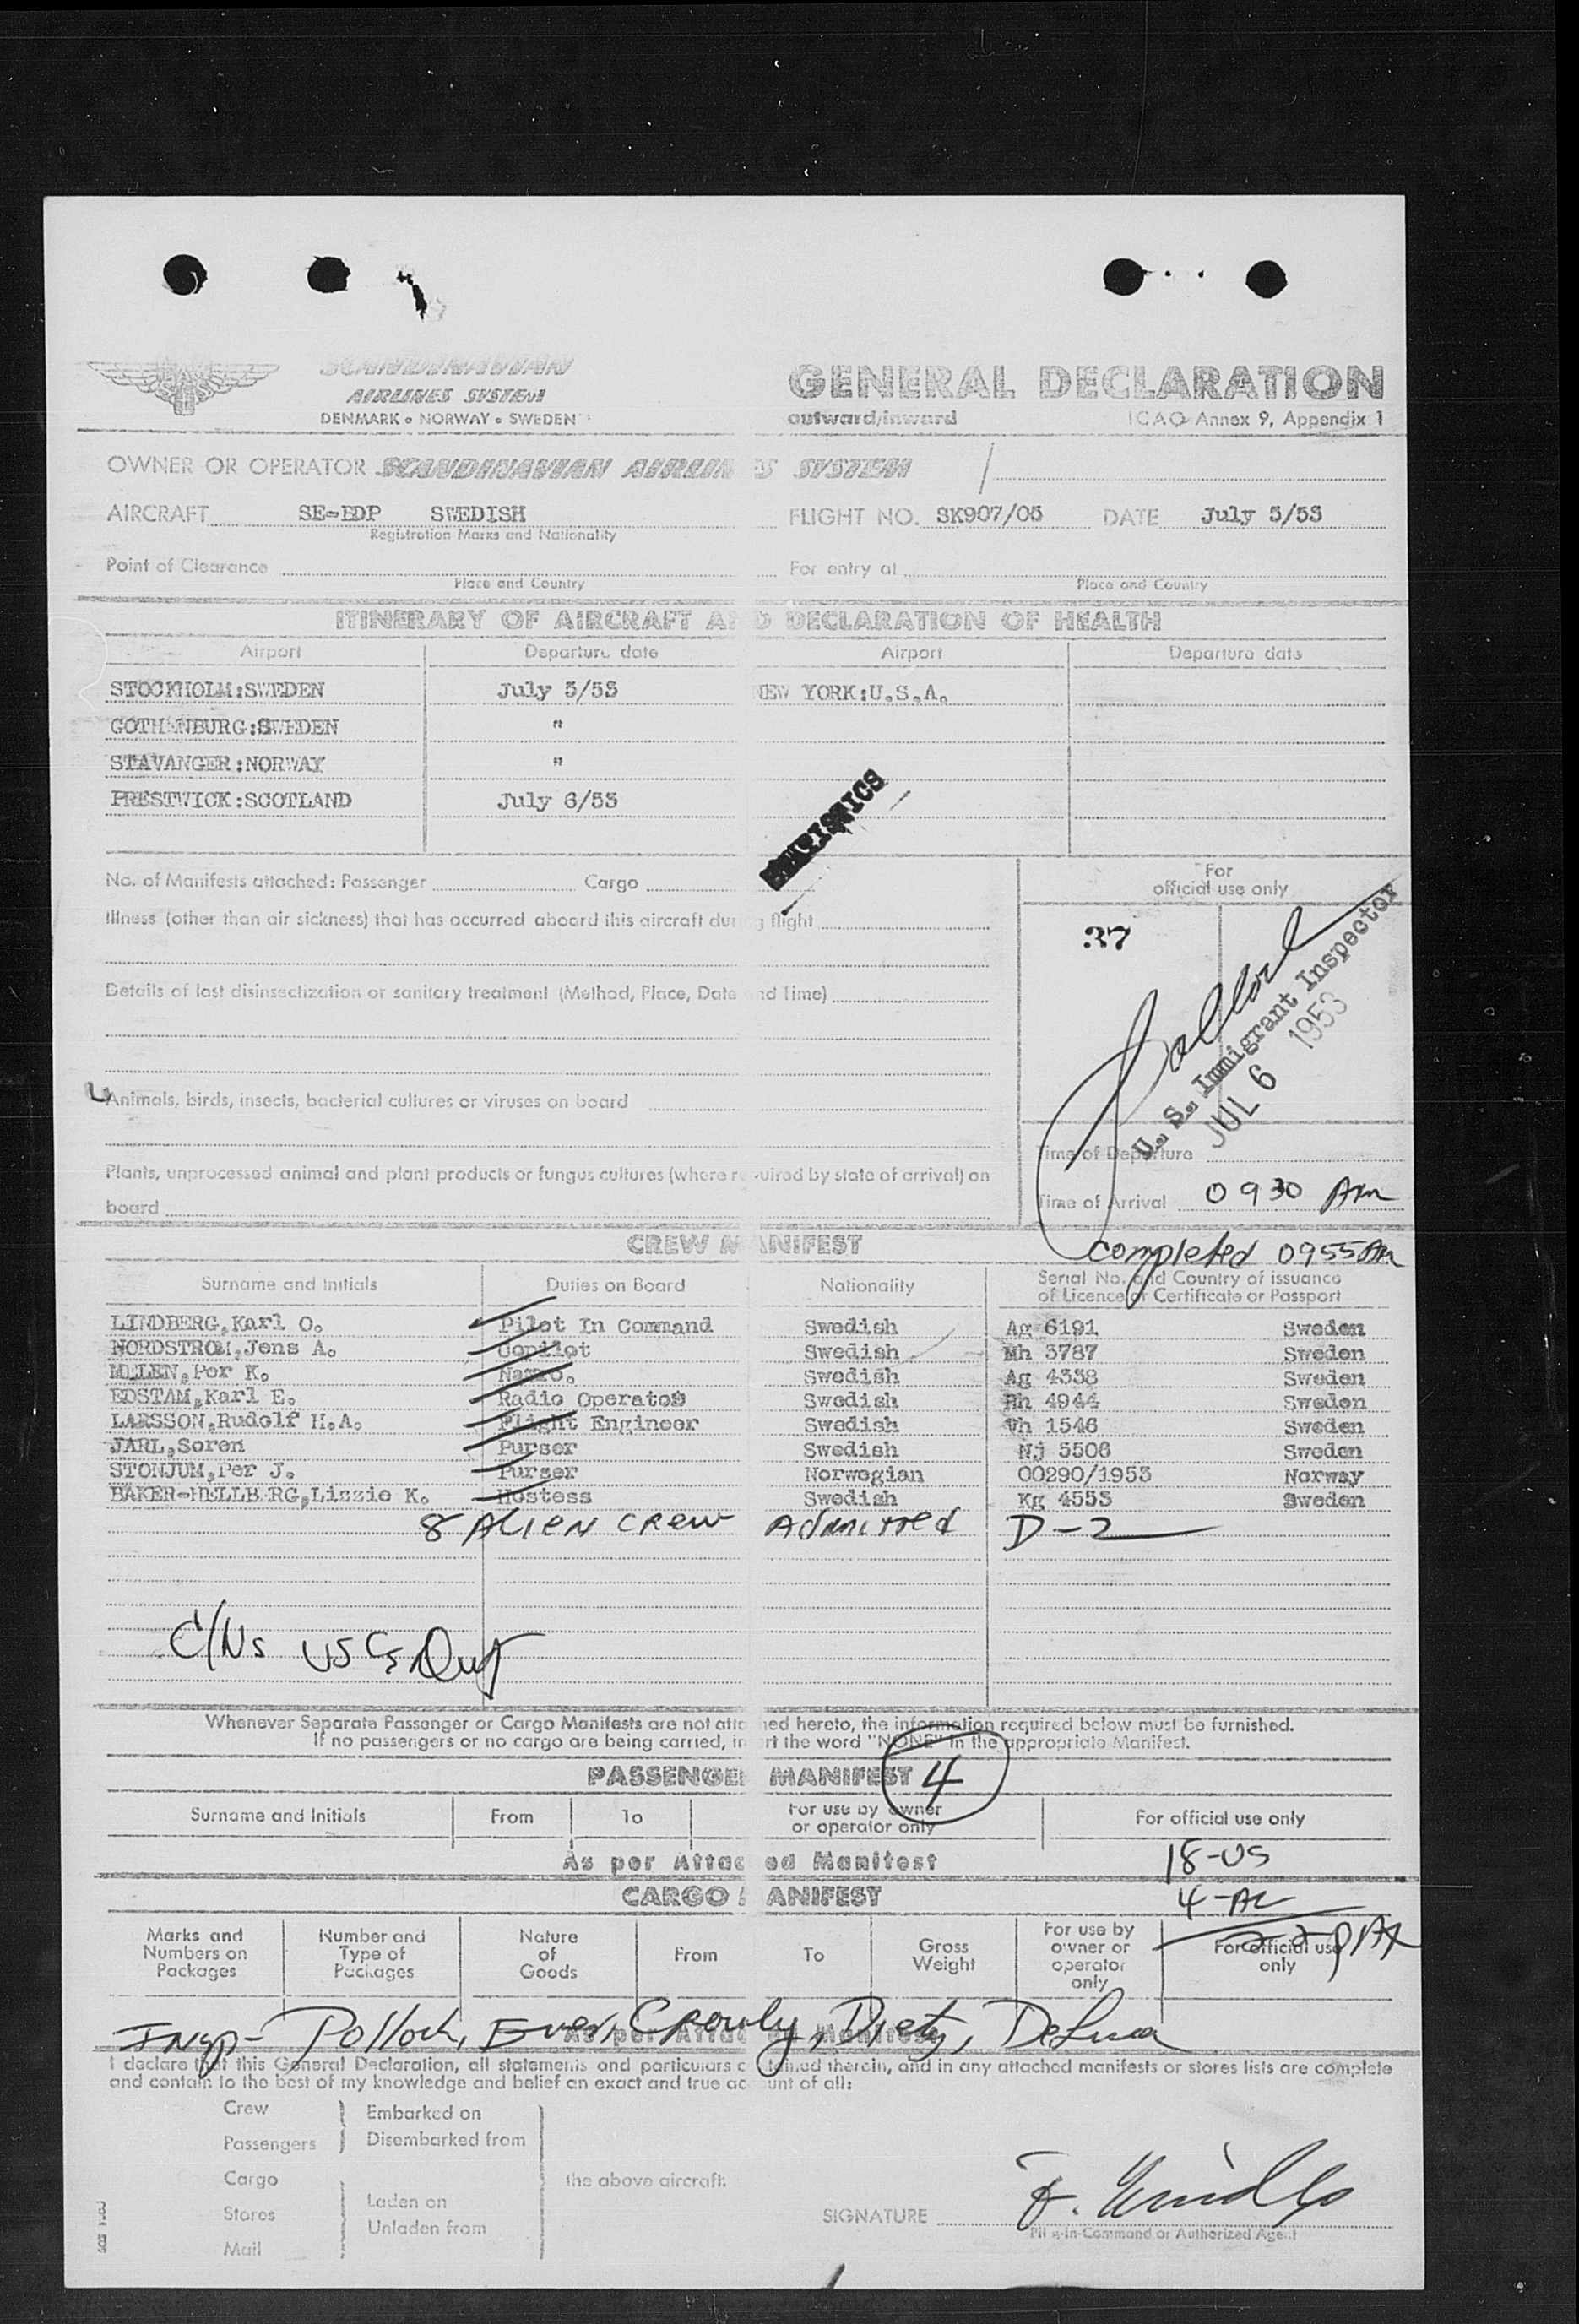 SCANDINAVIAN
AIRLINES SYSTEM
DENMARK • NORWAY • SWEDEN
GENERAL DECLARATION
outward/inward ICAO Annex 9, Appendix 1
OWNER OR OPERATOR SCANDINAVIAN AIRLINES SYSTEM
AIRCRAFT SE-BDP SWEDISH FLIGHT NO. SK907/05 DATE July 5/53
Registration Marks and Nationality
Point of Clearance For entry at
Place and Country Place and Country
ITINERARY OF AIRCRAFT AND DECLARATION OF HEALTH
Airport Departure date Airport Departure date
STOCKHOLM:SWEDEN July 5/53 NEW YORK:U.S.A.
GOTHENBURG:SWEDEN "
STAVANGER:NORWAY "
PRESTWICK:SCOTLAND July 6/53
STATISTICS
No. of Manifests attached: Passenger Cargo
For
official use only
Illness (other than air sickness) that has occurred aboard this aircraft during flight
37
Pollock
U. S. Immigrant Inspector
JUL 6 1953
Details of last disinsectization or sanitary treatment (Method, Place, Date and Time)
Animals, birds, insects, bacterial cultures or viruses on board
Time of Departure
Plants, unprocessed animal and plant products or fungus cultures (where required by state of arrival) on
board
Time of Arrival 0930 Am
completed 0955 Am
CREW MANIFEST
Surname and Initials Duties on Board Nationality Serial No. and Country of issuance
of Licence or Certificate or Passport
LINDBERG,Karl O. Pilot In Command Swedish Ag 6191 Sweden
NORDSTROM,Jens A. Copilot Swedish Mh 3787 Sweden
MELEN,Per K. Nav. Swedish Ag 4338 Sweden
EDSTAM,Karl E. Radio Operator Swedish Hh 4944 Sweden
LARSSON,Rudolf H.A. Flight Engineer Swedish Vh 1546 Sweden
JARL,Soren Purser Swedish Nj 5506 Sweden
STONJUM,Per J. Purser Norwegian 00290/1953 Norway
BAKER-HELLBERG,Lizzie K. Hostess Swedish Kg 4553 Sweden
8 ALIEN CREW Admitted D-2
C/Ns USCs Out
Whenever Separate Passenger or Cargo Manifests are not attached hereto, the information required below must be furnished.
If no passengers or no cargo are being carried, insert the word "NONE" in the appropriate Manifest.
PASSENGER MANIFEST 4
Surname and Initials From To For use by owner
or operator only For official use only
As per Attached Manifest 18-US
CARGO MANIFEST 4-AL
Marks and
Numbers on
Packages Number and
Type of
Packages Nature
of
Goods From To Gross
Weight For use by
owner or
operator
only For official use
only
22 PAX
Insp- Pollock, Ever, Crowly, Dietz, DeLuca
As per Attached Manifest
I declare that this General Declaration, all statements and particulars contained therein, and in any attached manifests or stores lists are complete
and contain to the best of my knowledge and belief an exact and true account of all:
Crew Embarked on
Passengers Disembarked from
Cargo the above aircraft.
Stores Laden on
Unladen from
Mail
SIGNATURE
Pilot-in-Command or Authorized Agent